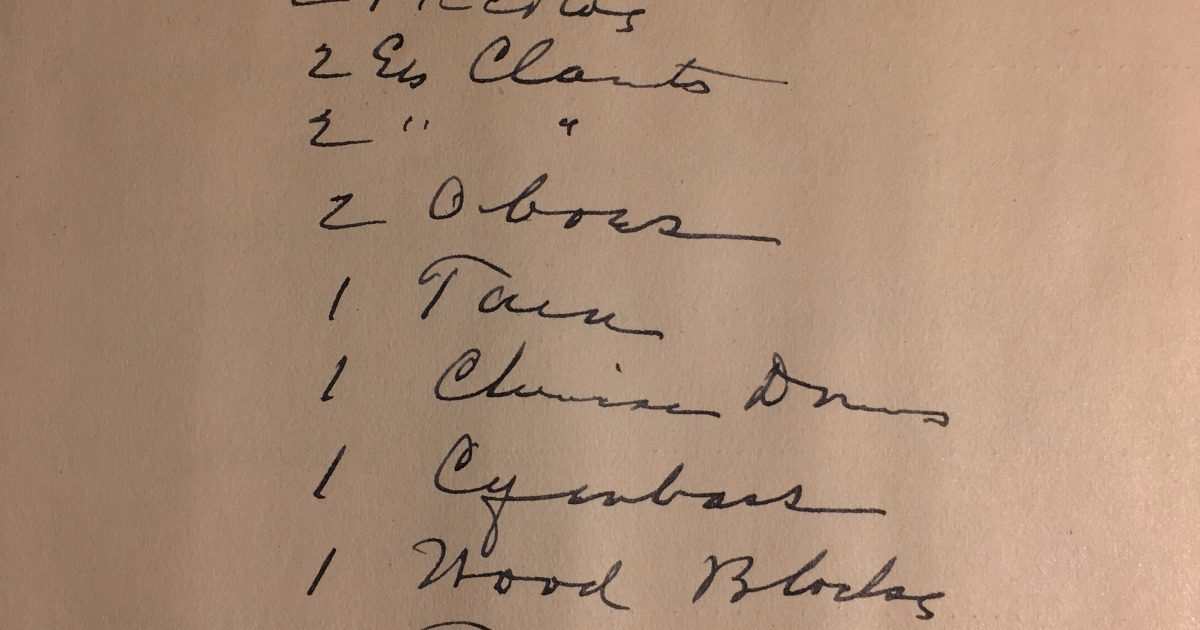 2 Eb Clarits
2 " "
2 Oboes
1 Tam
1 Chinise Drums
1 Cymbals
1 Wood Blocks